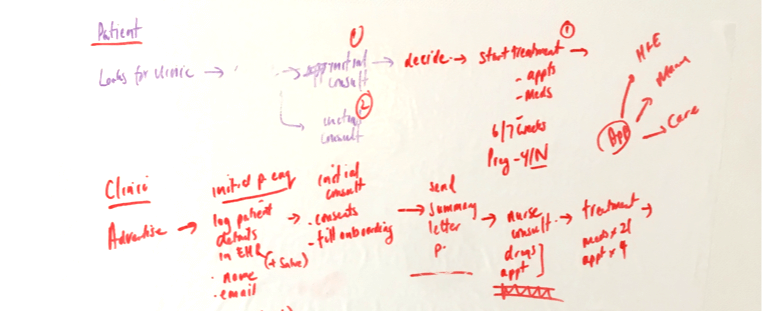 Patient
Looks for clinic → → initial consult → decide → start treatment →
①
①
- appts
- Meds
②
consult
6/7 weeks
Preg - Y/N
App
Care
Clinic
Advertise →
initial p. enq
log patient
details
in EHR
(+ Salve)
· name
· email
→
initial
consult
· consents
- full onboarding
→
send
summary
letter
p.
→
nurse
consult
drugs
appt
→
treatment →
meds x 21
appt x 4